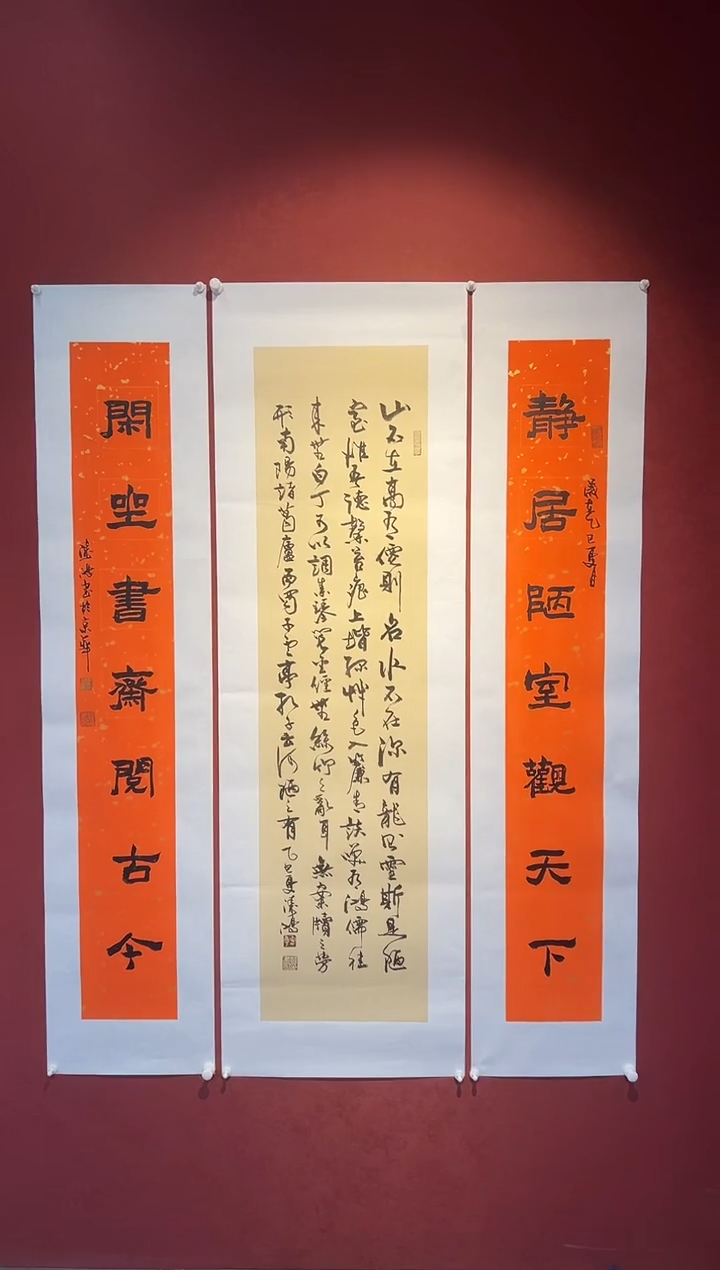 静居陋室觀天下
歲在乙巳夏日
山不在高有僊則名水不在深有龍則靈斯是陋
室惟吾德馨苔痕上堦綠艸色入簾青談笑有鴻儒往
来無白丁可以調素琴閱金經無絲竹之亂耳無案牘之勞
形南陽諸葛廬西蜀子雲亭孔子云何陋之有乙巳夏
閑坐書齋閱古今
書於京華